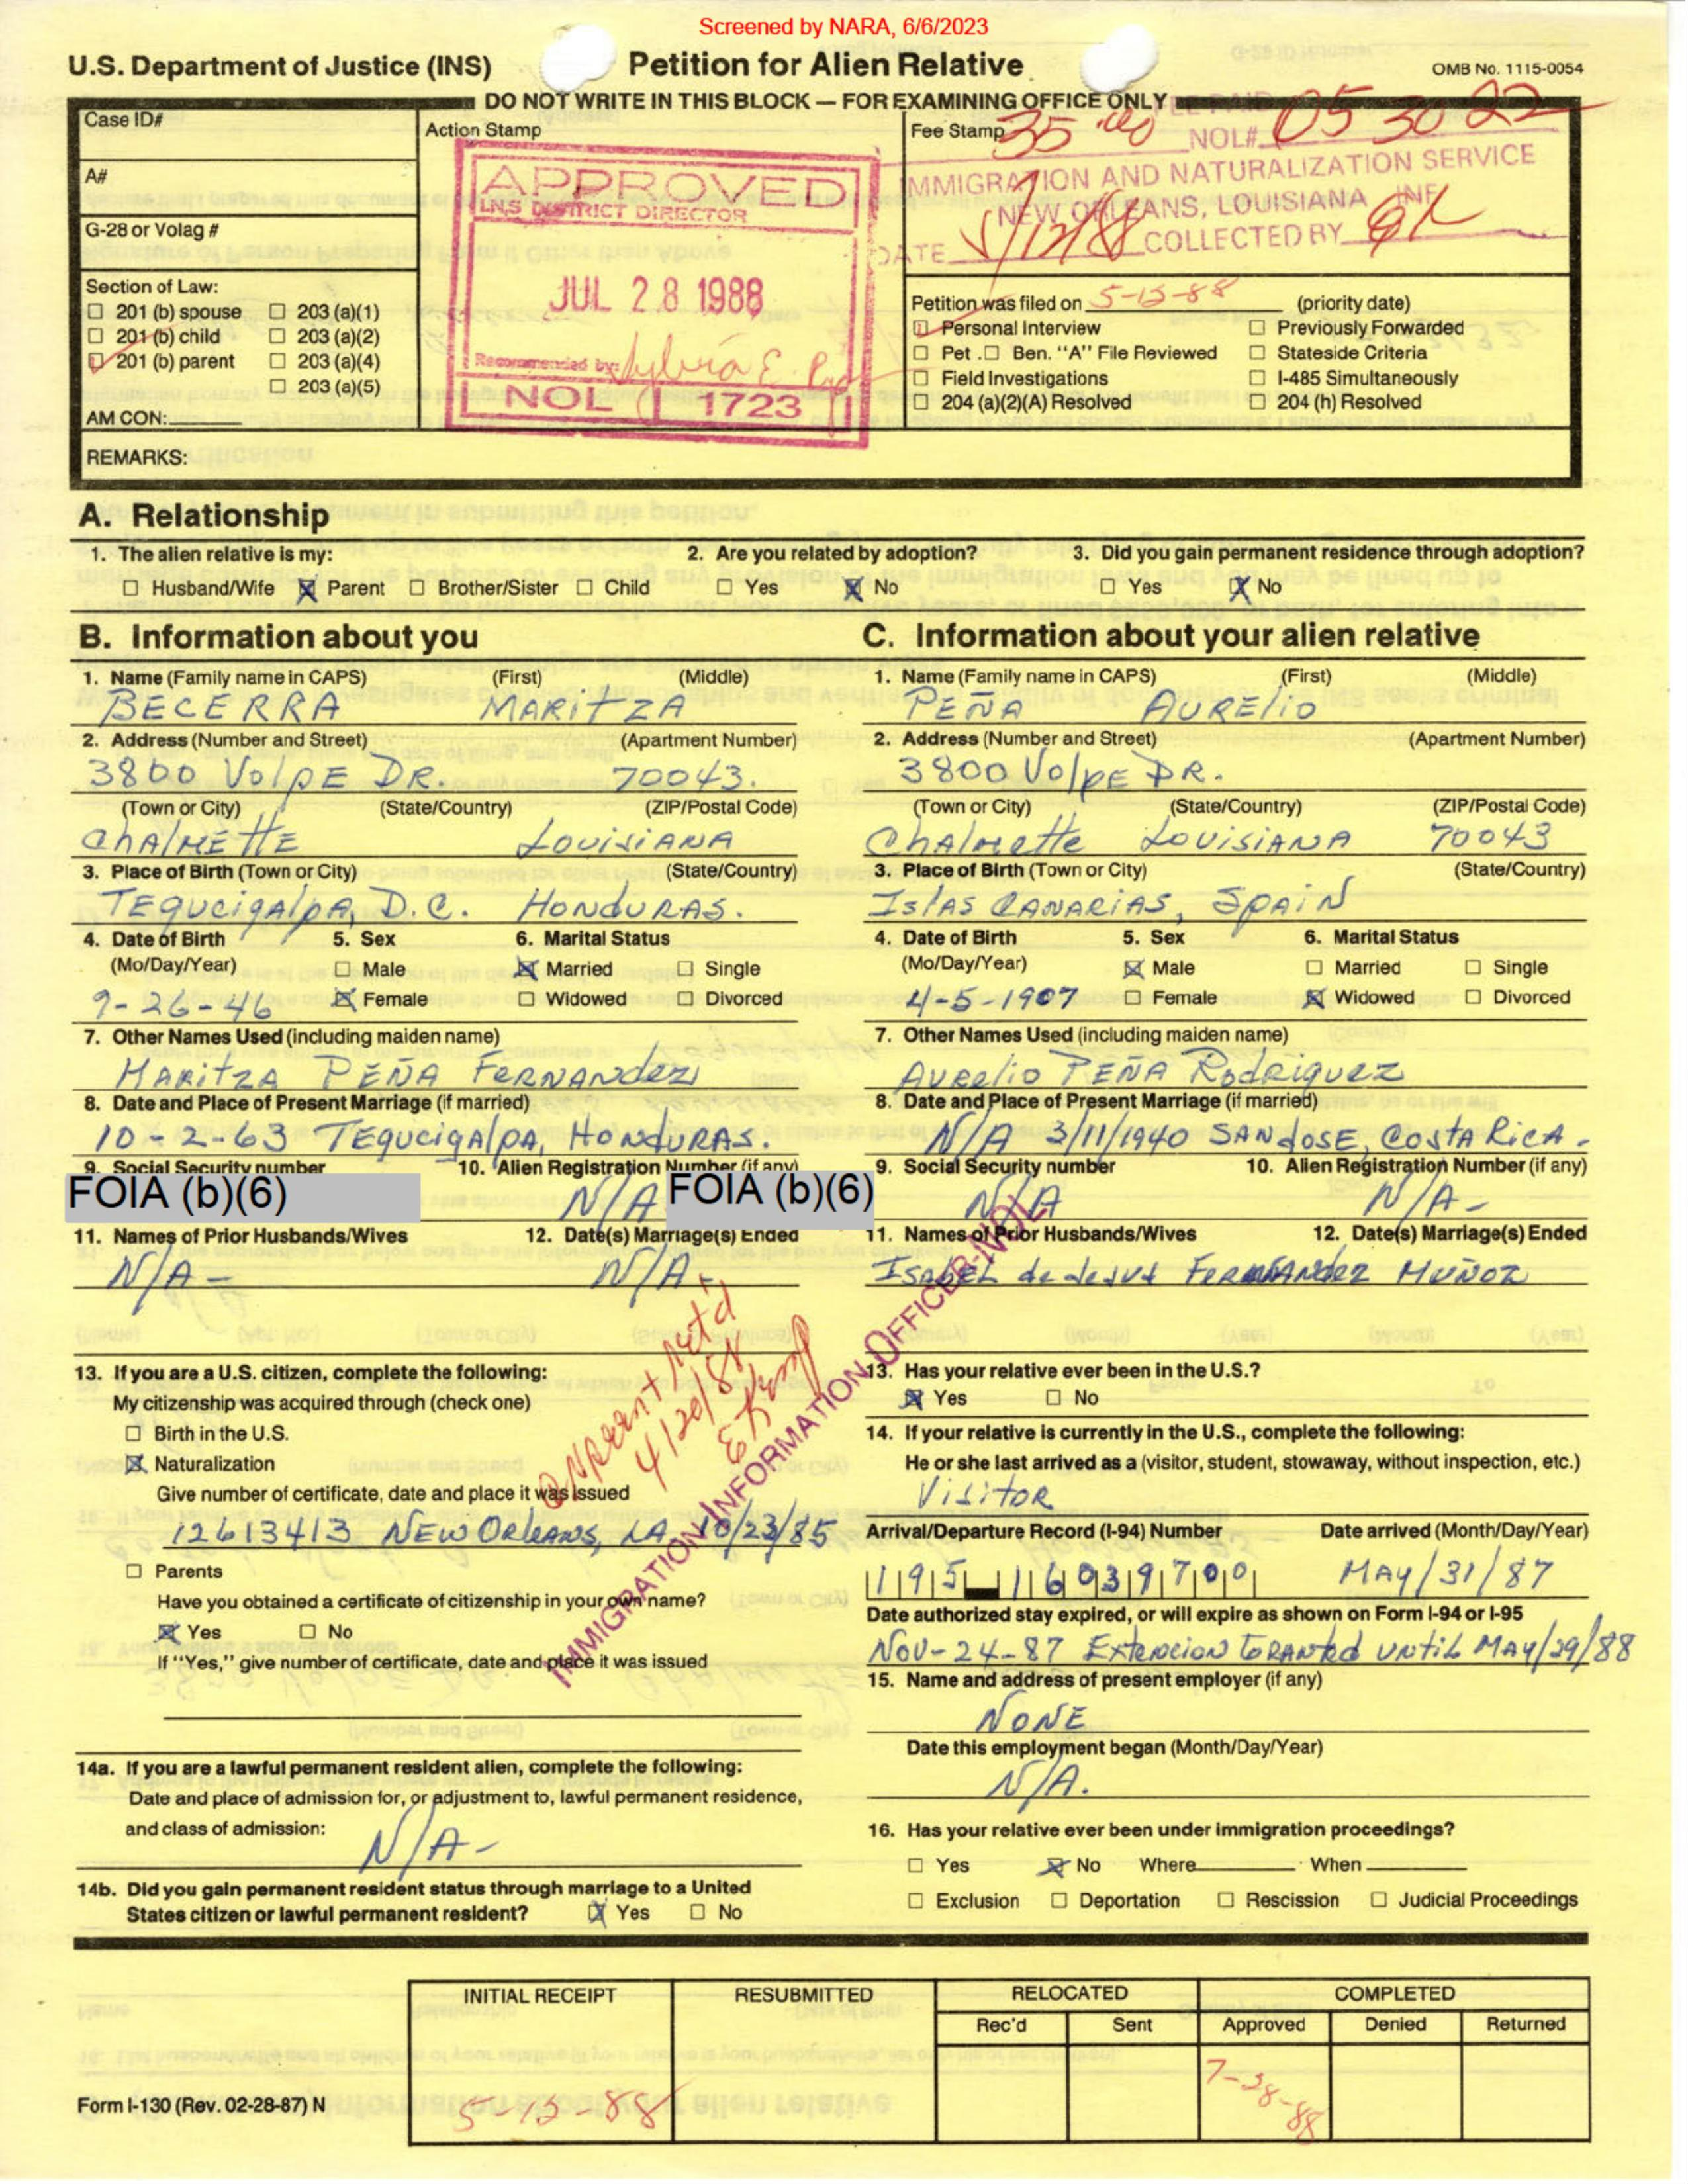 Screened by NARA, 6/6/2023
U.S. Department of Justice (INS)
Petition for Alien Relative
OMB No. 1115-0054
DO NOT WRITE IN THIS BLOCK — FOR EXAMINING OFFICE ONLY
Case ID#
A#
G-28 or Volag #
Section of Law:
☐ 201 (b) spouse ☐ 203 (a)(1)
☐ 201 (b) child ☐ 203 (a)(2)
☑ 201 (b) parent ☐ 203 (a)(4)
☐ 203 (a)(5)
AM CON:
Action Stamp
APPROVED
I.N.S DISTRICT DIRECTOR
JUL 28 1988
Recommended by: Sylvia E.
NOL 1723
Fee Stamp 35
FEE PAID
NOL# 05 30 22
IMMIGRATION AND NATURALIZATION SERVICE
NEW ORLEANS, LOUISIANA INF
DATE COLLECTED BY
Petition was filed on 5-13-88 (priority date)
☑ Personal Interview ☐ Previously Forwarded
☐ Pet . ☐ Ben. "A" File Reviewed ☐ Stateside Criteria
☐ Field Investigations ☐ I-485 Simultaneously
☐ 204 (a)(2)(A) Resolved ☐ 204 (h) Resolved
REMARKS:
A. Relationship
1. The alien relative is my: 2. Are you related by adoption? 3. Did you gain permanent residence through adoption?
☐ Husband/Wife ☒ Parent ☐ Brother/Sister ☐ Child ☐ Yes ☒ No ☐ Yes ☒ No
B. Information about you
1. Name (Family name in CAPS) (First) (Middle)
BECERRA MARITZA
2. Address (Number and Street) (Apartment Number)
3800 VOLPE DR. 70043.
(Town or City) (State/Country) (ZIP/Postal Code)
ChALMETTE LOUISIANA
3. Place of Birth (Town or City) (State/Country)
TEGUCIGALPA, D.C. HONDURAS.
4. Date of Birth 5. Sex 6. Marital Status
(Mo/Day/Year) ☐ Male ☒ Married ☐ Single
9-26-46 ☒ Female ☐ Widowed ☐ Divorced
7. Other Names Used (including maiden name)
MARITZA PEÑA FERNANDEZ
8. Date and Place of Present Marriage (if married)
10-2-63 TEGUCIGALPA, HONDURAS.
9. Social Security number 10. Alien Registration Number (if any)
FOIA (b)(6) N/A FOIA (b)(6)
11. Names of Prior Husbands/Wives 12. Date(s) Marriage(s) Ended
N/A - N/A -
13. If you are a U.S. citizen, complete the following:
My citizenship was acquired through (check one)
☐ Birth in the U.S.
☒ Naturalization
Give number of certificate, date and place it was issued
12613413 NEW ORLEANS, LA, 10/23/85
☐ Parents
Have you obtained a certificate of citizenship in your own name?
☒ Yes ☐ No
If "Yes," give number of certificate, date and place it was issued
14a. If you are a lawful permanent resident alien, complete the following:
Date and place of admission for, or adjustment to, lawful permanent residence,
and class of admission:
N/A -
14b. Did you gain permanent resident status through marriage to a United
States citizen or lawful permanent resident? ☒ Yes ☐ No
4/20/88
IMMIGRATION INFORMATION OFFICER-NOL
C. Information about your alien relative
1. Name (Family name in CAPS) (First) (Middle)
PEÑA AURELIO
2. Address (Number and Street) (Apartment Number)
3800 VOLPE DR.
(Town or City) (State/Country) (ZIP/Postal Code)
Chalmette LOUISIANA 70043
3. Place of Birth (Town or City) (State/Country)
Islas CANARIAS, SPAIN
4. Date of Birth 5. Sex 6. Marital Status
(Mo/Day/Year) ☒ Male ☐ Married ☐ Single
4-5-1907 ☐ Female ☒ Widowed ☐ Divorced
7. Other Names Used (including maiden name)
Aurelio PEÑA Rodriguez
8. Date and Place of Present Marriage (if married)
N/A 3/11/1940 SAN JOSE, COSTA RICA.
9. Social Security number 10. Alien Registration Number (if any)
N/A N/A -
11. Names of Prior Husbands/Wives 12. Date(s) Marriage(s) Ended
ISABEL de Jesus FERNANDEZ MUÑOZ
13. Has your relative ever been in the U.S.?
☒ Yes ☐ No
14. If your relative is currently in the U.S., complete the following:
He or she last arrived as a (visitor, student, stowaway, without inspection, etc.)
VISITOR
Arrival/Departure Record (I-94) Number Date arrived (Month/Day/Year)
195 16039700 MAY/31/87
Date authorized stay expired, or will expire as shown on Form I-94 or I-95
NOV-24-87 Extencion GRANTED UNTIL MAY/29/88
15. Name and address of present employer (if any)
NONE
Date this employment began (Month/Day/Year)
N/A.
16. Has your relative ever been under immigration proceedings?
☐ Yes ☒ No Where When
☐ Exclusion ☐ Deportation ☐ Rescission ☐ Judicial Proceedings
INITIAL RECEIPT RESUBMITTED RELOCATED COMPLETED
Rec'd Sent Approved Denied Returned
5-13-88 7-28-88
Form I-130 (Rev. 02-28-87) N